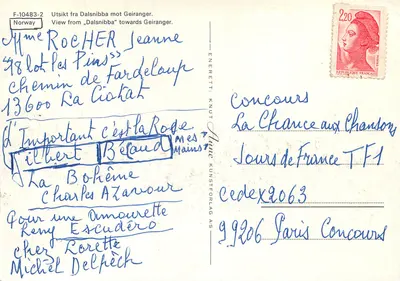 F-10483-2
Norway
Utsikt fra Dalsnibba mot Geiranger.
View from „Dalsnibba" towards Geiranger.
Mme ROCHER Jeanne
"18 lot les Pins"
chemin de Fardeloup
13600 La Ciotat
l'Important c'est la Rose
Gilbert Bécaud
Mes Mains
La Bohème
Charles AZnavour
Pour une amourette
Leny Escudéro
chez Lorette
Michel Delpêch
ENERETT: KNUT
KUNSTFORLAG
2,20
REPUBLIQUE FRANÇAISE
Concours
La Chance aux Chansons
Jours de France TF1
cedex 2063
99206 Paris Concours